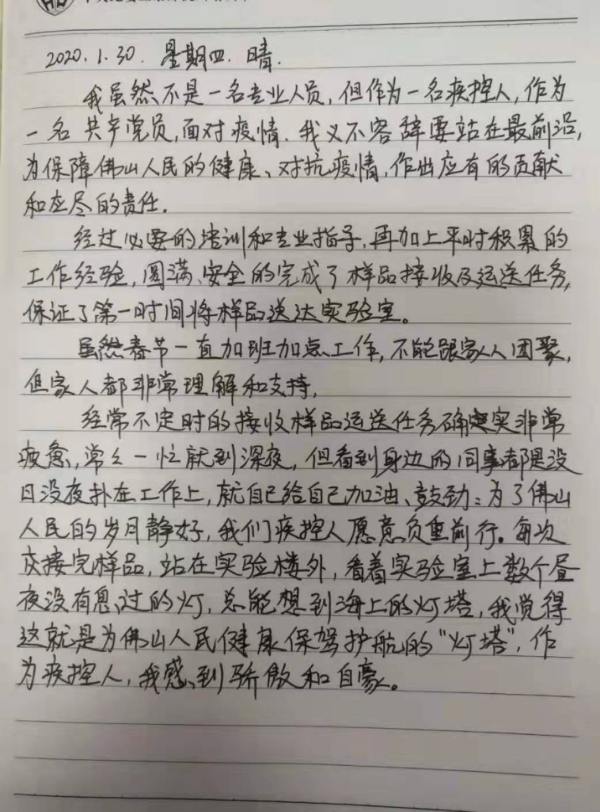 2020.1.30. 星期四. 晴.
我虽然不是一名专业人员,但作为一名疾控人,作为
一名共产党员,面对疫情、我义不容辞要站在最前沿,
为保障佛山人民的健康、对抗疫情,作出应有的贡献
和应尽的责任.
经过必要的培训和专业指导,再加上平时积累的
工作经验,圆满、安全的完成了样品接收及运送任务,
保证了第一时间将样品送达实验室。
虽然春节一直加班加点工作,不能跟家人团聚,
但家人都非常理解和支持,
经常不定时的接收样品运送任务确实非常
疲惫,常々一忙就到深夜,但看到身边的同事都是没
日没夜扑在工作上,就自己给自己加油、鼓劲:为了佛山
人民的岁月静好,我们疾控人愿意负重前行。每次
交接完样品,站在实验楼外,看着实验室上数个昼
夜没有息过的灯,总能想到海上的灯塔,我觉得
这就是为佛山人民健康保驾护航的“灯塔”,作
为疾控人,我感到骄傲和自豪。